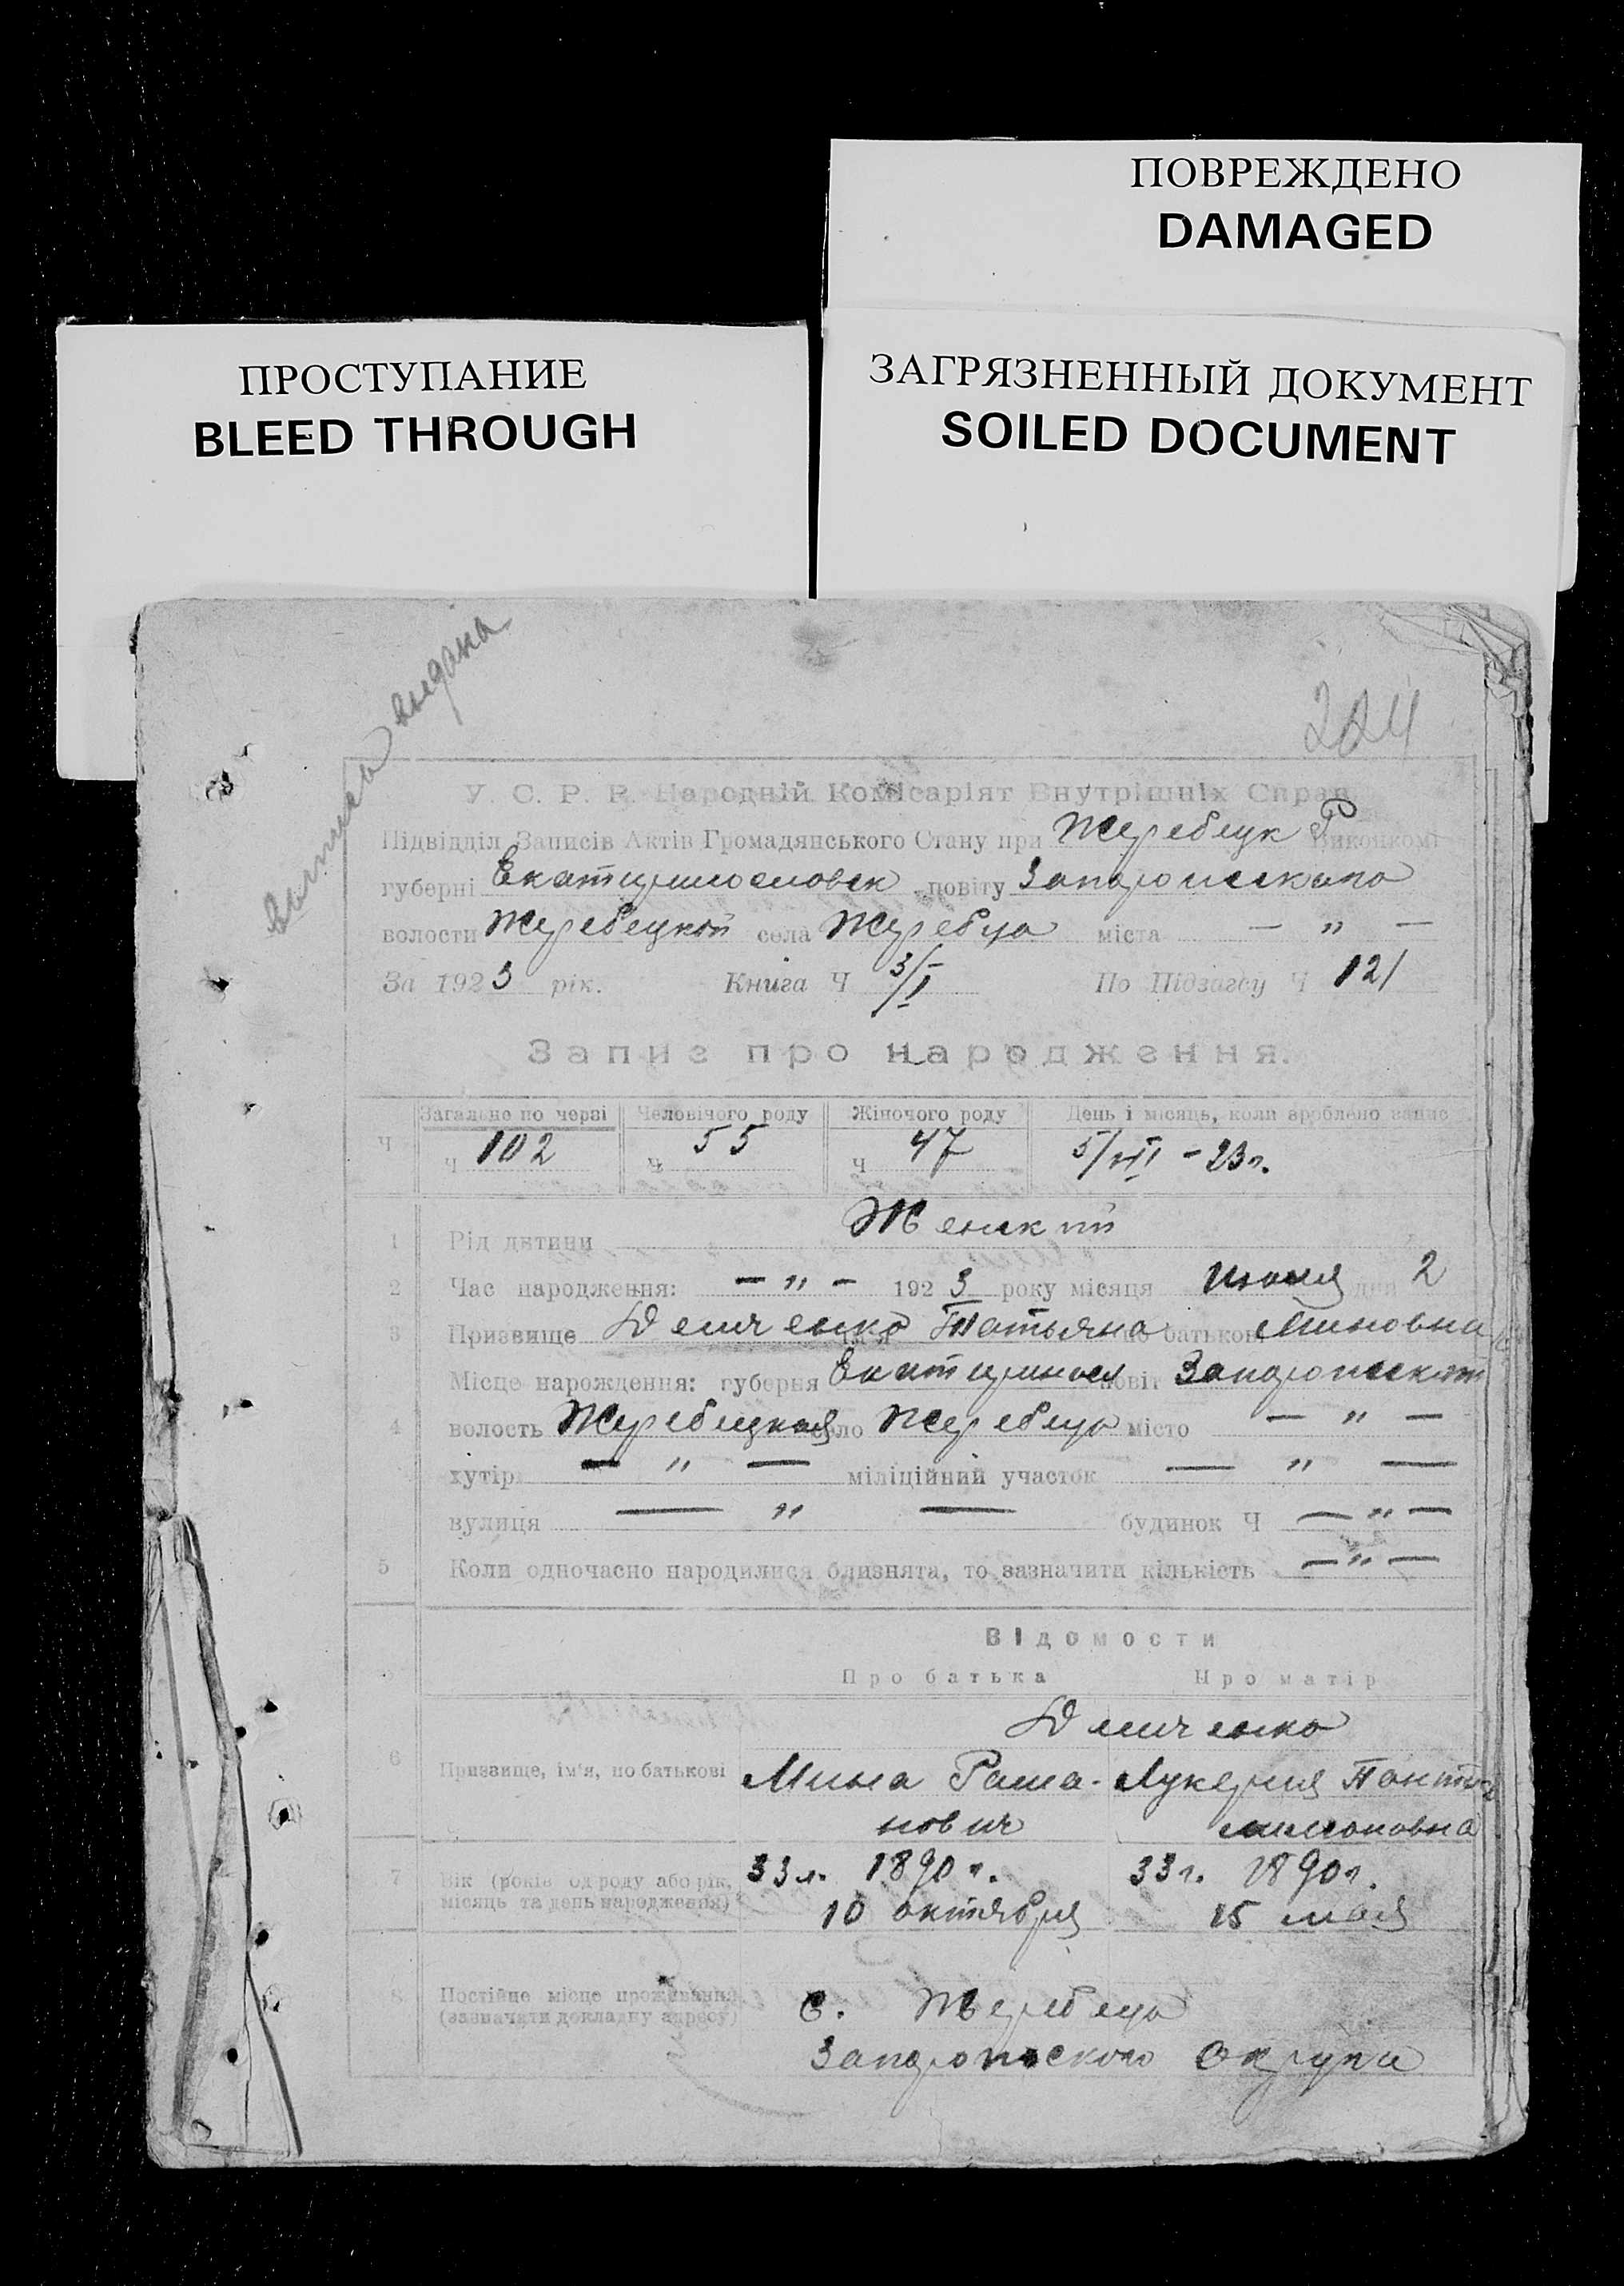 ПОВРЕЖДЕНО
DAMAGED
ПРОСТУПАНИЕ
BLEED THROUGH
ЗАГРЯЗНЕННЫЙ ДОКУМЕНТ
SOILED DOCUMENT
выпись выдана
224
У. С. Р. Р. Народній Комісаріят Внутрішніх Справ
Підвідділ Записів Актів Громадянського Стану при Жеребецк Р Виконкомі
губерні Екатеринославск повіту Запорожского
волости Жеребецкой села Жеребца міста — „ —
За 1923 рік. Книга Ч 3/I По Підзагсу Ч 121
Запис про народження.
Загально по черзі Человічого роду Жіночого роду День і місяць, коли зроблено запис
Ч Ч 102 Ч 55 Ч 47 5/VII - 23г.
1 Рід дитини Женский
2 Час народження: — „ — 1923 року місяця Июня дня 2
3 Призвище Демченко Татьяна по батькові Миновна
Місце народження: губерня Екатериносл повіт Запорожский
4 волость Жеребецкая село Жеребец місто — „ —
хутір — „ — міліційний участок — „ —
вулиця — „ — будинок Ч — „ —
5 Коли одночасно народилися близнята, то зазначити кількість — „ —
Відомости
Про батька Про матір
Демченко
6 Призвище, ім'я, по батькові Мина Рома- Лукерия Панте-
нович лимоновна
7 Вік (років од роду або рік, 33 л. 1890 г. 33 г. 1890 г.
місяць та день народження) 10 октября 15 мая
8 Постійне місце проживання с. Жеребца
(зазначити докладну адресу) Запорожского Округа